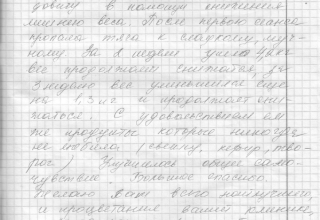 довии в помощи снижения
лишнего веса. После первого сеанса
пропала тяга к сладкому, муч-
ному. За 1 неделю ушло 4,2 кг
вес продолжает снижаться, за
3 неделю вес уменьшился еще
на 1,3 кг и продолжает сни-
жаться. С удовольствием ем
те продукты которые никогда
не любила (свеклу, кефир, тво-
рог) Улучшилось общее само-
чувствие. Большое спасибо.
Желаю Вам всего наилучшего,
и процветания вашей клинике,